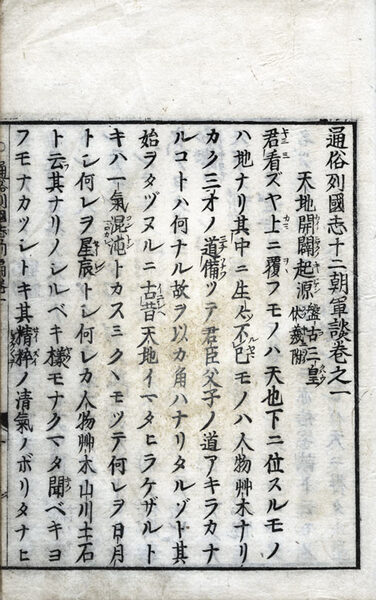 通俗列國志十二朝軍談卷之一
天地開闢起源 盤古三皇 伏羲附
君看ズヤ上ニ覆フモノハ天也下ニ位スルモノ
ハ地ナリ其中ニ生〆不已モノハ人物艸木ナリ
カク三才ノ道備ツテ君臣父子ノ道アキラカナ
ルコトハ何ナル故ヲ以カ角ハナリタルゾト其
始ヲタヅヌルニ古昔天地イマタヒラケザルト
キハ一氣混沌トカスミクヽモツテ何レヲ日月
トシ何レヲ星辰トシ何レカ人物艸木山川土石
ト云其ナリノシルベキ樣モナクマタ聞ベキヨ
フモナカツシトキ其精粹ノ清氣ノボリタナヒ